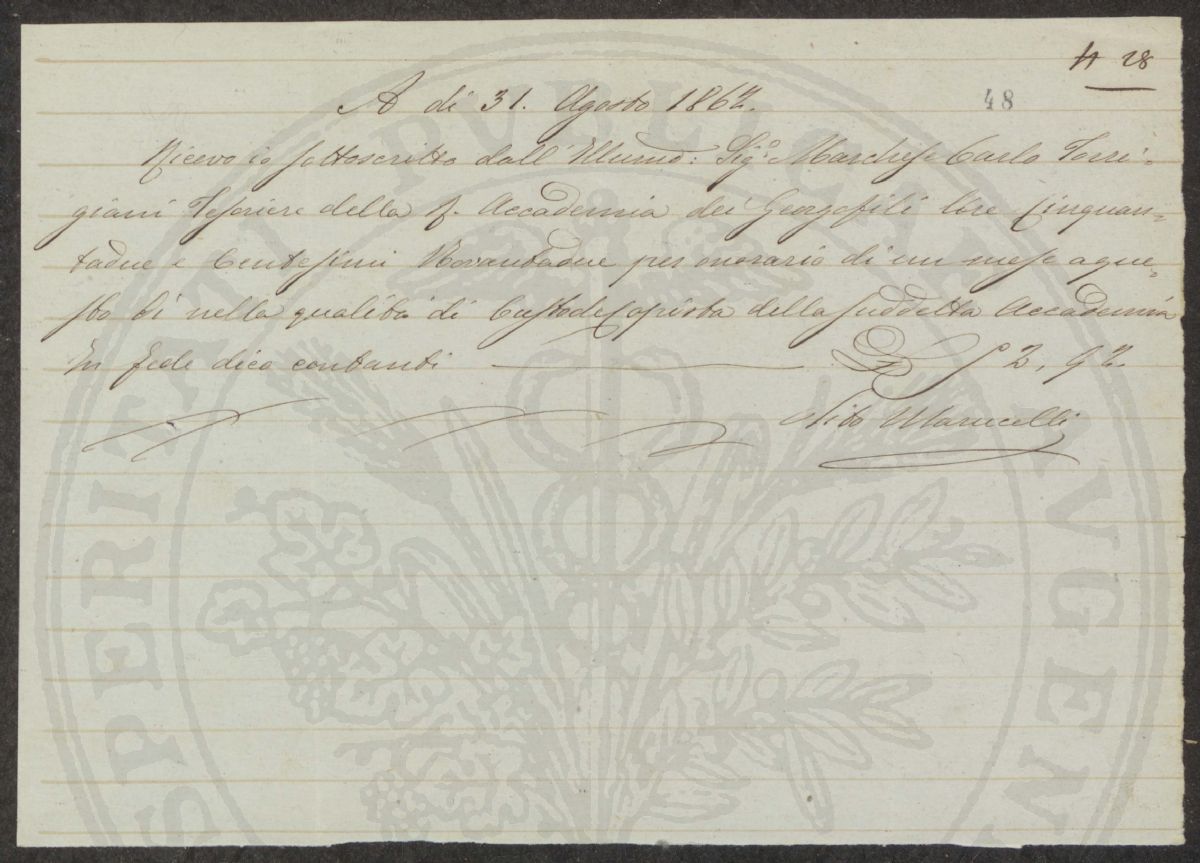 4 28
A dì 31. Agosto 1862.
48
Ricevo io sottoscritto dall' Illumo: Sigo Marchese Carlo Torri-
giani Tesoriere della R. Accademia dei Georgofili Lire Cinquan-
tadue e Centesimi Novantadue per onorario di un mese a que-
sto dì nella qualità di Custode Copista della suddetta Accademia
In fede dico contanti 52, 92.
Tito Marucelli
PROSPERITATI PVBLICAE AVGENDAE